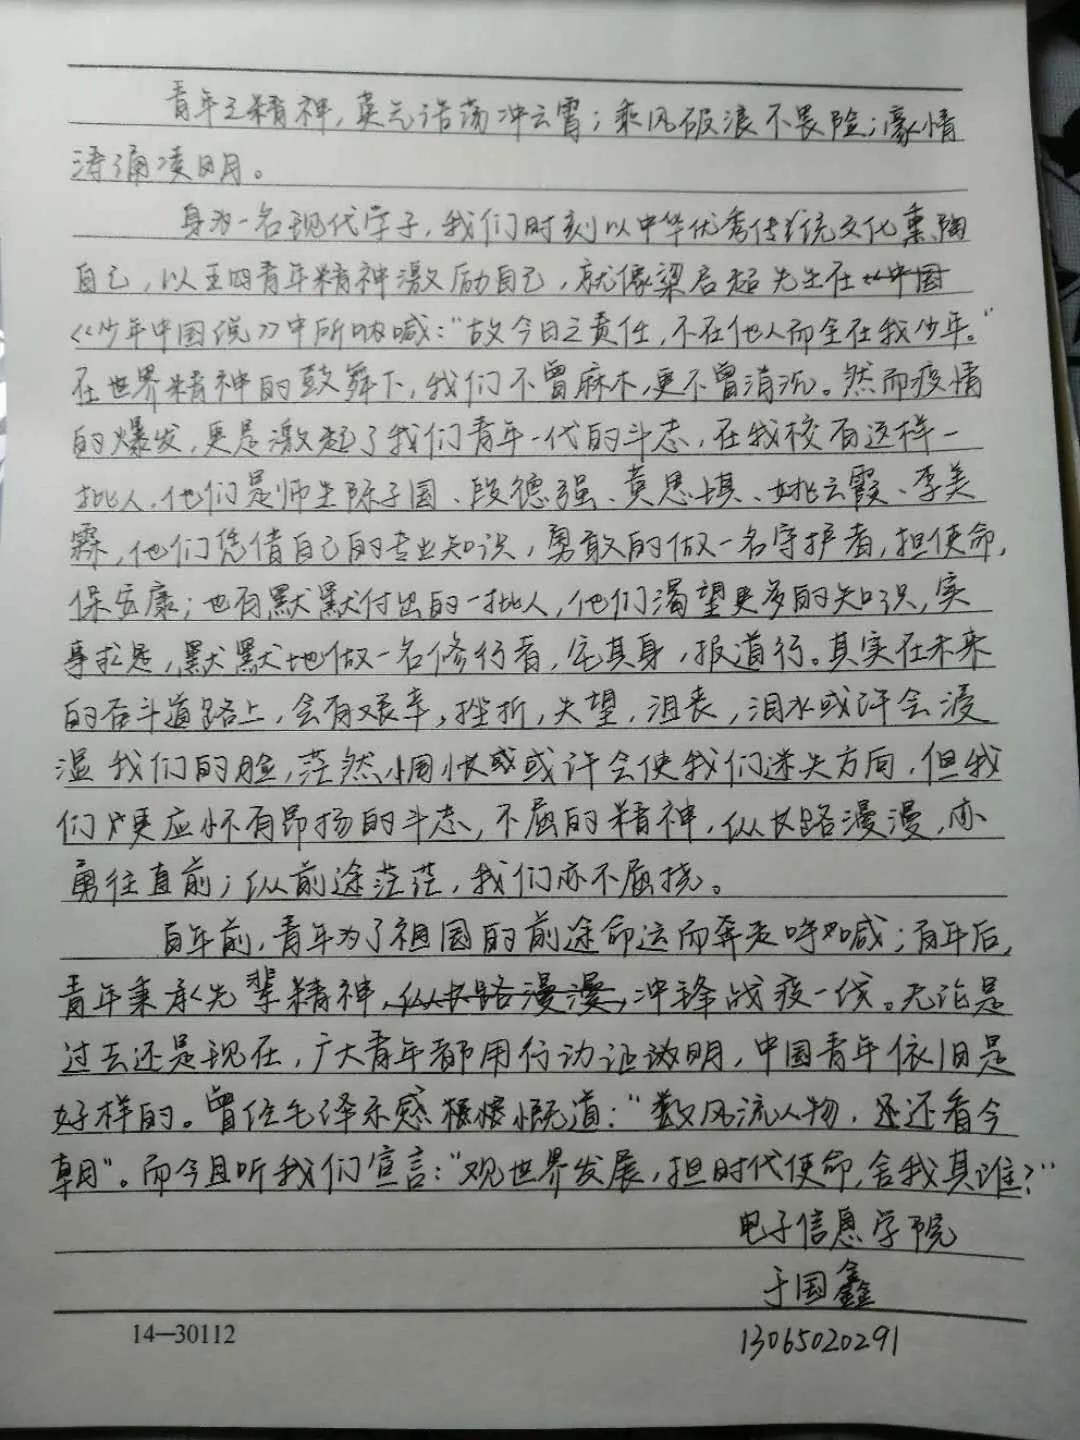 青年之精神，英元浩荡冲云霄；乘风破浪不畏险；豪情
涛涌凌日月。
身为一名现代学子，我们时刻以中华优秀传统文化熏陶
自己，以五四青年精神激励自己，就像梁启超先生在《中国
《少年中国说》中所呐喊：“故今日之责任，不在他人而全在我少年。”
在世界精神的鼓舞下，我们不曾麻木，更不曾消沉。然而疫情
的爆发，更是激起了我们青年一代的斗志，在我校有这样一
批人，他们是师生陈子国、段德强、黄思琪、姚云霞、李美
霖，他们凭借自己的专业知识，勇敢的做一名守护者，担使命，
保安康；也有默默付出的一批人，他们渴望更多的知识，实
事求是，默默地做一名修行者，宅其身，报道行。其实在未来
的奋斗道路上，会有艰辛，挫折，失望，沮丧，泪水或许会浸
湿我们的脸，茫然惆怅或或许会使我们迷失方向，但我
们更应怀有昂扬的斗志，不屈的精神，纵长路漫漫，亦
勇往直前；纵前途茫茫，我们亦不屈挠。
百年前，青年为了祖国的前途命运而奔走呼喊；百年后，
青年秉承先辈精神，纵长路漫漫，冲锋战疫一线。无论是
过去还是现在，广大青年都用行动证明，中国青年依旧是
好样的。曾任毛泽东感慨道：“数风流人物，还看今
朝”。而今且听我们宣言：“观世界发展，担时代使命，舍我其谁？”
电子信息学院
于国鑫
14—30112
13065020291